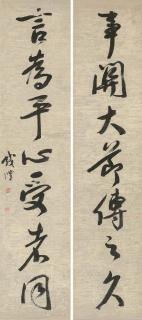 事關大節傳之久
言為平心受者同
錢灃